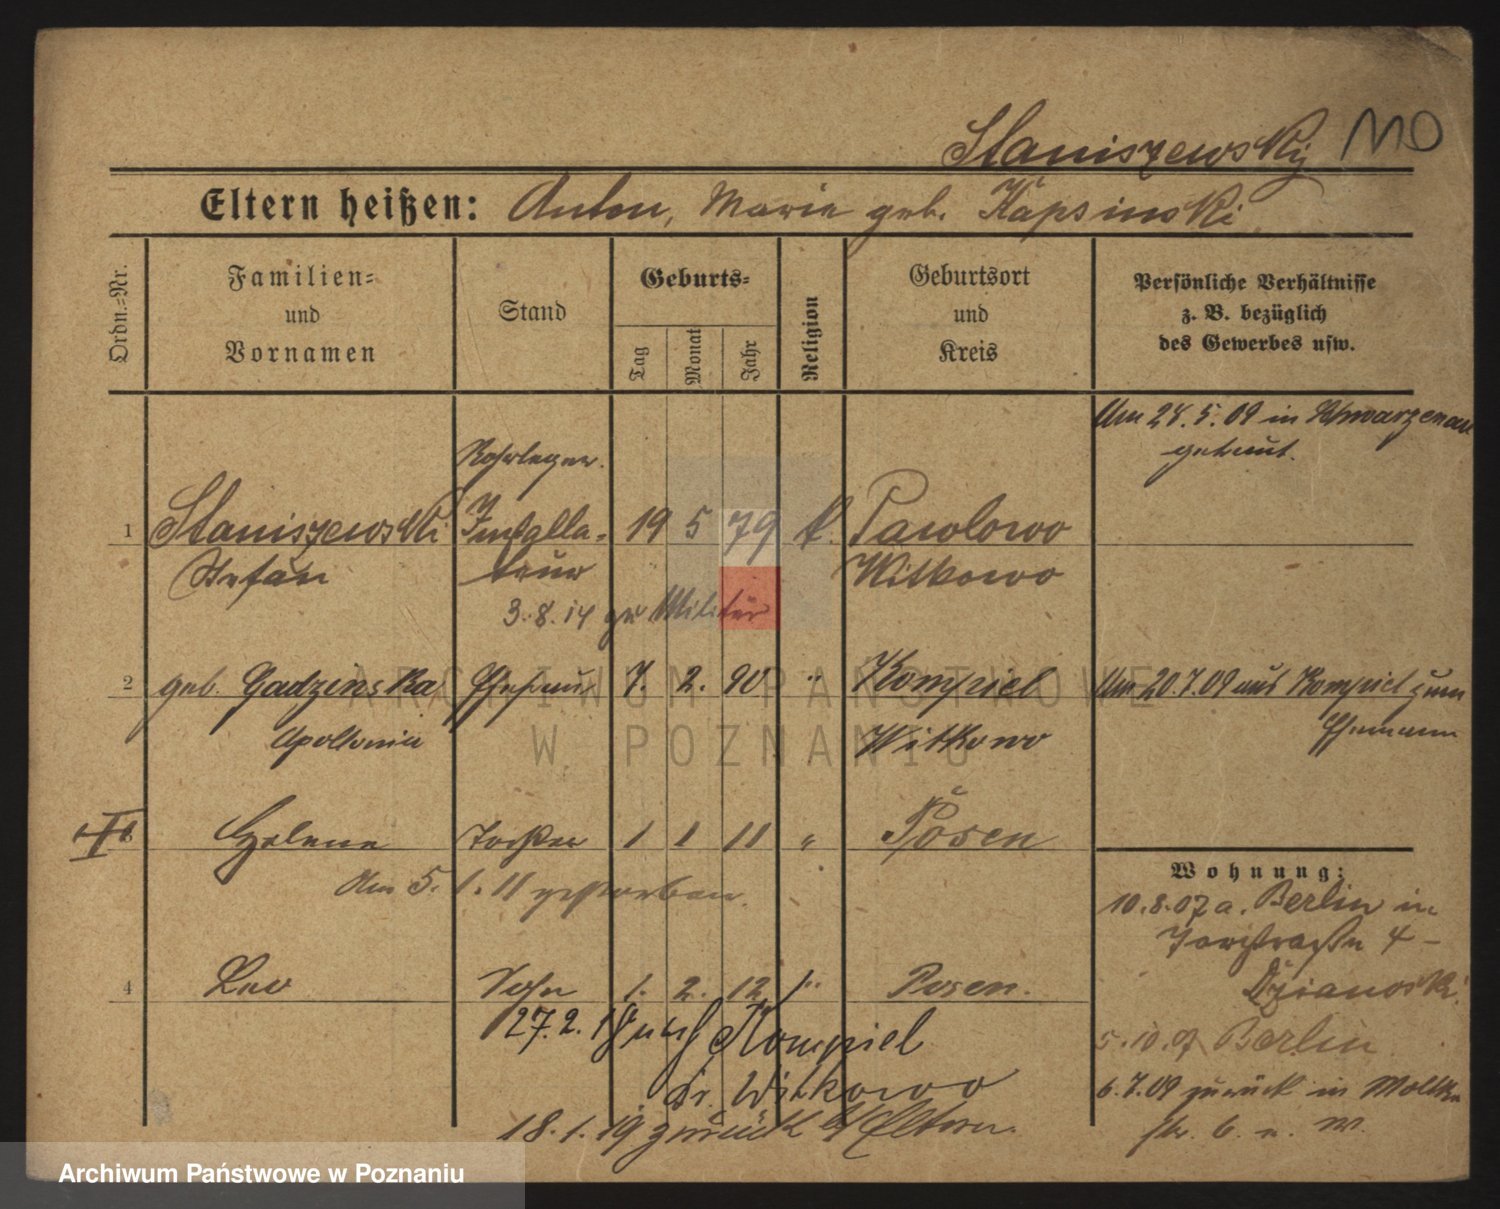 Staniszewski
110
Eltern heißen: Anton, Marie geb. Kapsinski
Ordn.-Nr.
Familien-
und
Vornamen
Stand
Geburts-
Tag
Monat
Jahr
Religion
Geburtsort
und
Kreis
Persönliche Verhältnisse
z. B. bezüglich
des Gewerbes usw.
Am 24.5.09 in Schwarzenau
getraut.
Rohrleger.
1 Staniszewski Installa- 19 5 79 k. Pawlowo
Stefan teur Witkowo
3.8.14 zu Militär
2 geb. Gadzinska Ehefrau 7. 2. 90 " Kompiel
Am 20.7.09 aus Kompiel zum
Ehemann
Apollonia Witkowo
3 Helene Tochter 1 1 11 " Posen
Am 5. 1. 11 gestorben.
Wohnung:
10.8.07 a. Berlin in
4 –
4 Leo Sohn 1. 2. 12 " Posen.
27.2. nach Kompiel
Kr. Witkowo
18.1.19 zurück Eltern.
5.10.07 Berlin
6.7.09 zurück in Moltke
str. 6. b. W.
ARCHIWUM PAŃSTWOWE
W POZNANIU
Archiwum Państwowe w Poznaniu